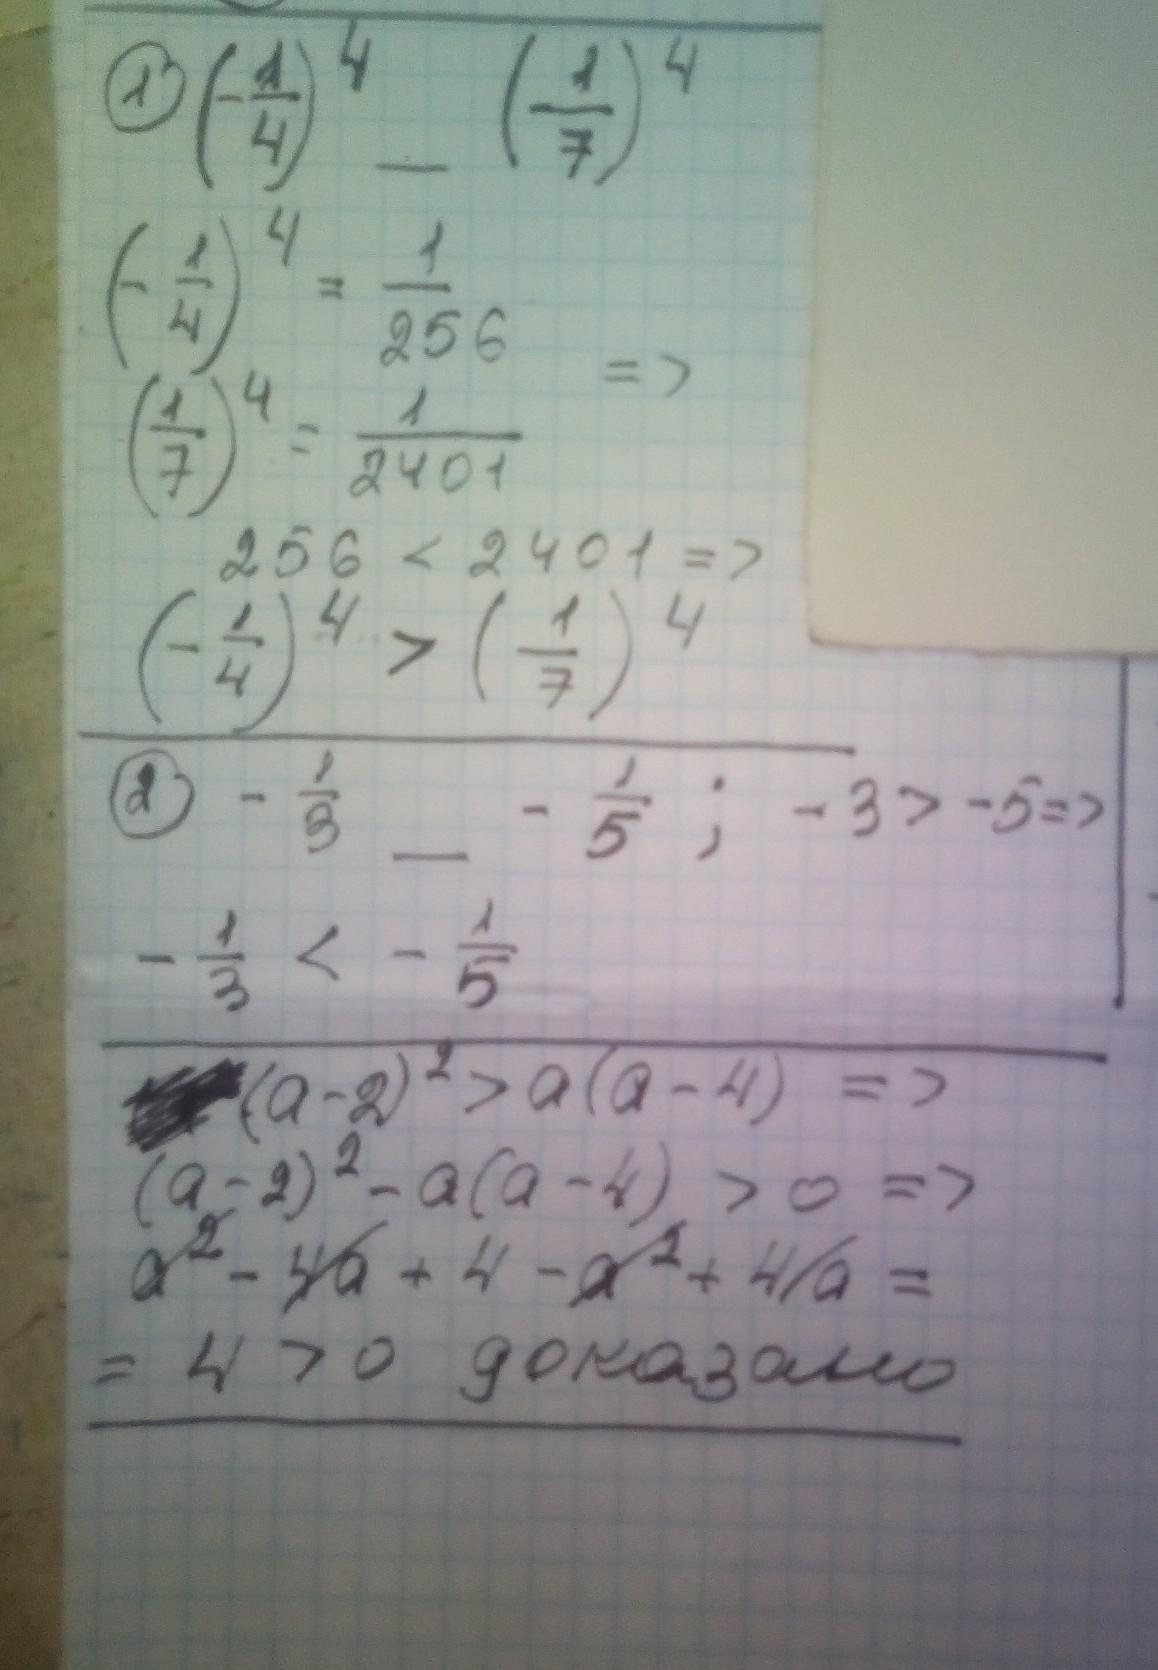 1) (-1/4)^4 _ (1/7)^4
(-1/4)^4 = 1/256
=>
(1/7)^4 = 1/2401
256 < 2401 =>
(-1/4)^4 > (1/7)^4
2) -1/3 _ -1/5 ; -3 > -5 =>
-1/3 < -1/5
(a-2)^2 > a(a-4) =>
(a-2)^2 - a(a-4) > 0 =>
a^2 - 4a + 4 - a^2 + 4a =
= 4 > 0 доказано